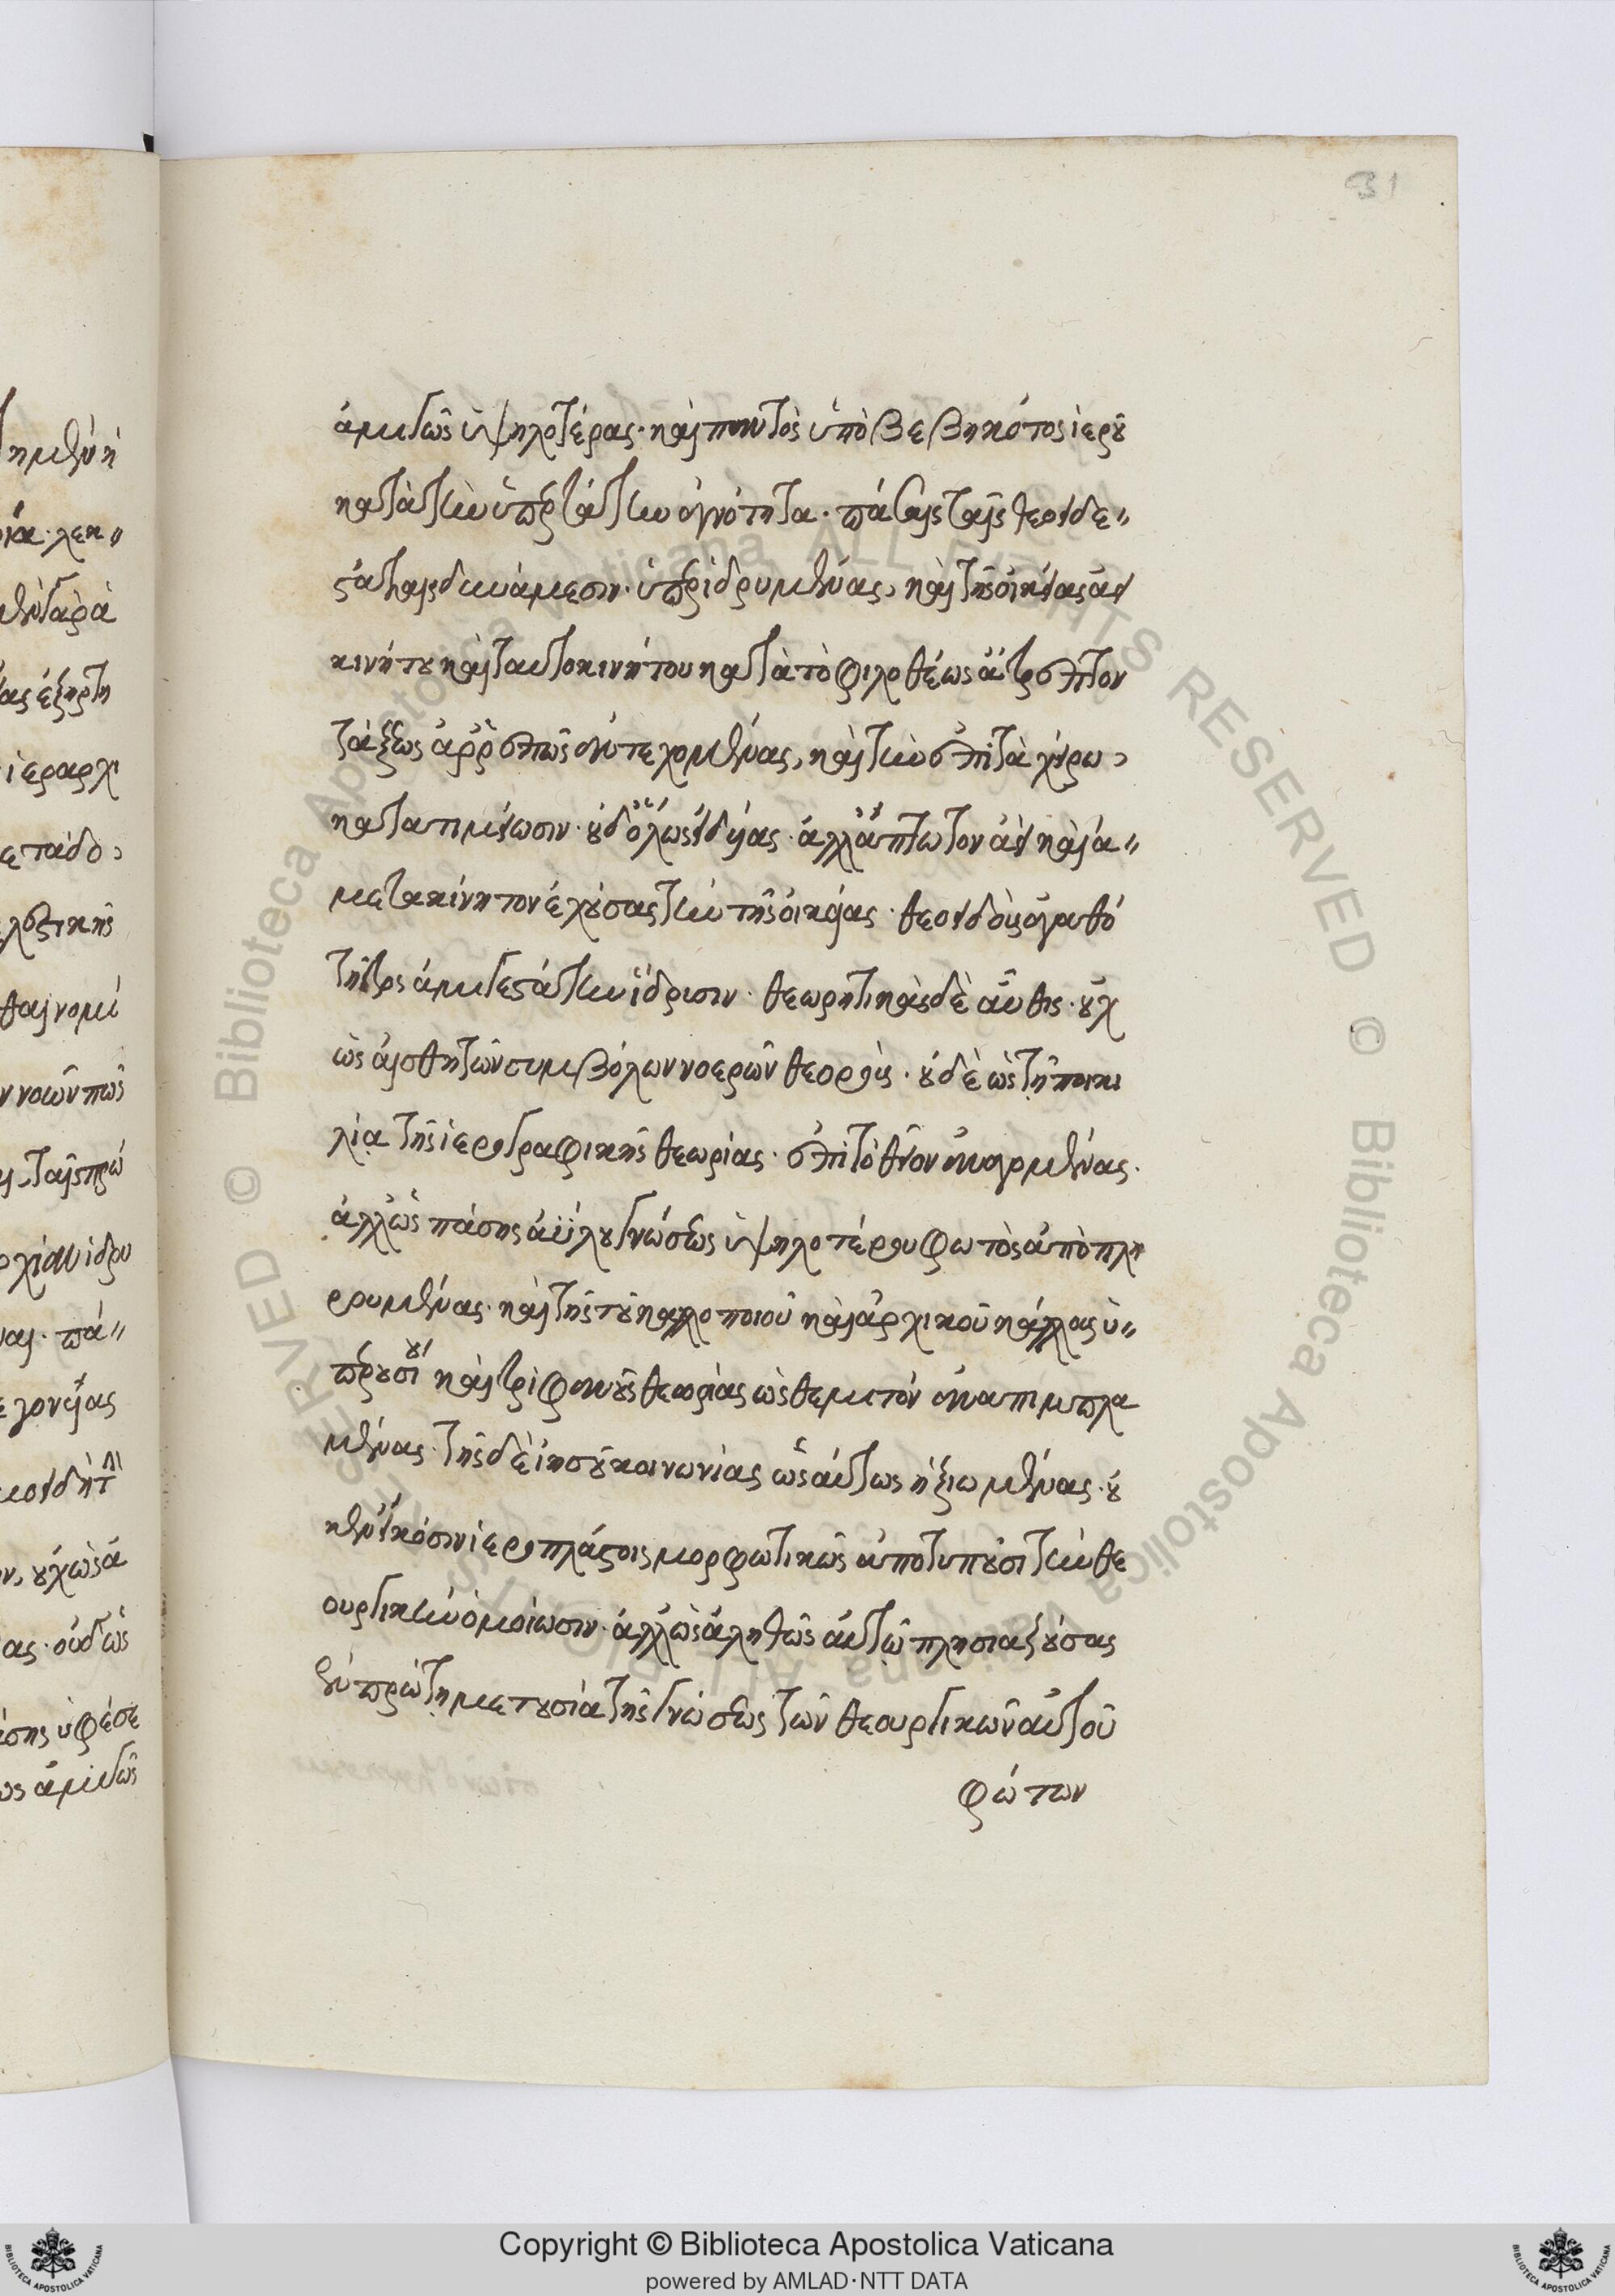 31
ἀμιγῶς ὑψηλοτέρας· καὶ παντὸς ὑποβεβηκότος ἱεροῦ
κατὰ τὴν ὑπερτάτην ἁγνότητα· πάσαις ταῖς θεοειδε〃
στάταις δυνάμεσιν· ὑπεριδρυμένας, καὶ τῆς οἰκείας ἀει
κινήτου καὶ ταυτοκινήτου κατὰ τὸ φιλοθέως ἄτρεπτον
τάξεως ἀρρεπῶς ἀντεχομένας, καὶ τὴν ἐπὶ τὰ χείρω,
κατὰ τι μείωσιν· οὐδ' ὅλως εἰδυίας· ἀλλ' ἄπτωτον ἀεὶ καὶ ἀ〃
μετακίνητον ἐχούσας τὴν τῆς οἰκείας· θεοειδοῦς ἀγαθό
τητος ἀμιγεστάτην ἵδρισιν· θεωρητικὰς δὲ αὖθις· οὐχ
ὡς αἰσθητῶν συμβόλων νοερῶν θεοροὺς· οὐδὲ ὡς τῇ ποικι
λίᾳ τῆς ἱερογραφικῆς θεωρίας· ἐπὶ τὸ θεῖον ἀναγομένας·
ἀλλ' ὡς πάσης ἀΰλου γνώσεως ὑψηλοτέρου φωτὸς ἀποπλη
ρουμένας· καὶ τῆς τοῦ καλλοποιοῦ καὶ ἀρχικοῦ κάλλους ὑ〃
περουσίου καὶ τριφανοῦς θεωρίας ὡς θεμιτόν ἀναπιμπλα
μένας· τῆς δὲ ἰησοῦ κοινωνίας ὡσαύτως ἠξιωμένας· οὐ
κ ἐν εἰκόσιν ἱεροπλάστοις μορφωτικῶς ἀποτυπούσι τὴν θε
ουργικὴν ὁμοίωσιν· ἀλλ' ὡς ἀληθῶς αὐτῷ πλησιαζούσας
ἐν πρώτῃ μετουσίᾳ τῆς γνώσεως τῶν θεουργικῶν αὐτοῦ
φώτων
Copyright © Biblioteca Apostolica Vaticana
powered by AMLAD·NTT DATA